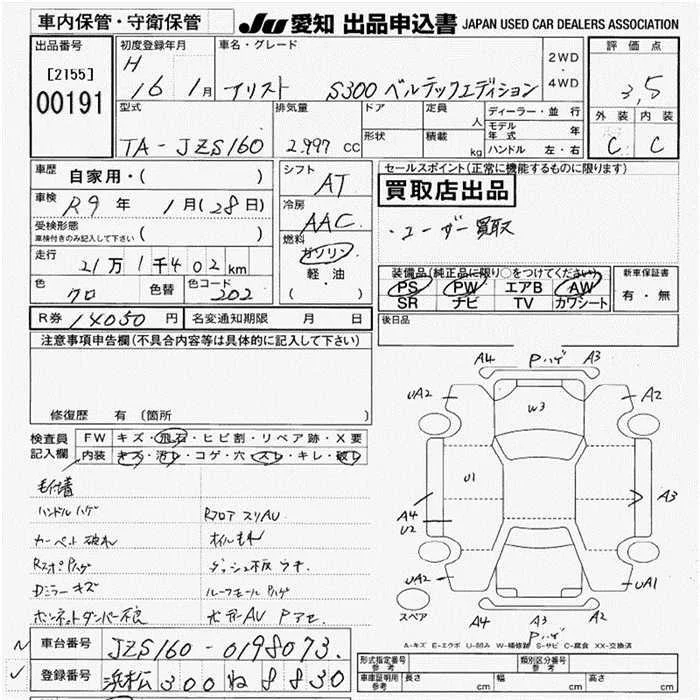 車内保管・守衛保管 JU 愛知 出品申込書 JAPAN USED CAR DEALERS ASSOCIATION
出品番号 初度登録年月 車名・グレード 2WD・4WD 評価点
[2155] H
00191 16 1月 アリスト S300 ベルテックエディション 3,5
型式 排気量 ドア 定員 人 ディーラー・並行 外装 内装
形状 積載 kg モデル年式 年
TA-JZS160 2.997 CC ハンドル 左・右 C C
車歴 自家用・( ) シフト AT セールスポイント(正常に機能するものに限ります)
買取店出品
車検 R9 年 1月(28日) 冷房 AAC
・ユーザー買取
受検形態 車検付きのみ記入して下さい ( )
燃料 ガソリン
走行 21万1千402km 軽・油 ( )
装備品(純正品に限り○をつけてください) 新車保証書
PS PW エアB AW 有・無
色 クロ 色替 色コード 202 SR ナビ TV カワシート
R券 14050円 名変通知期限 月 日 後日品
注意事項申告欄(不具合内容等は具体的に記入して下さい)
修復歴 有 (箇所 )
検査員記入欄 FW キズ・飛石・ヒビ割・リペア跡・X要
内装 キズ・汚レ・コゲ・穴・スレ・キレ・破レ
ハンドルハゲ RフロアスリAU
カーペット破れ オイルもれ
RスポPハゲ ダッシュ板ウキ
Dミラーキズ ルーフモールPハゲ
ボンネットダンパー不良 ボディーAU Pアセ
A4 Pハゲ A3
UA2 A2
W3
U1
A4 U2 A3
UA2 UA1
スペア
A4 A3 A2
Pハゲ
A-キズ E-エクボ U-凹み W-補修跡 S-サビ C-腐食 XX-交換済
車台番号 JZS160-0198073.
登録番号 浜松300ね8830
形式指定番号 参考 類別区分番号 参考
車庫証明用 参考 長さ cm 幅 cm 高さ cm